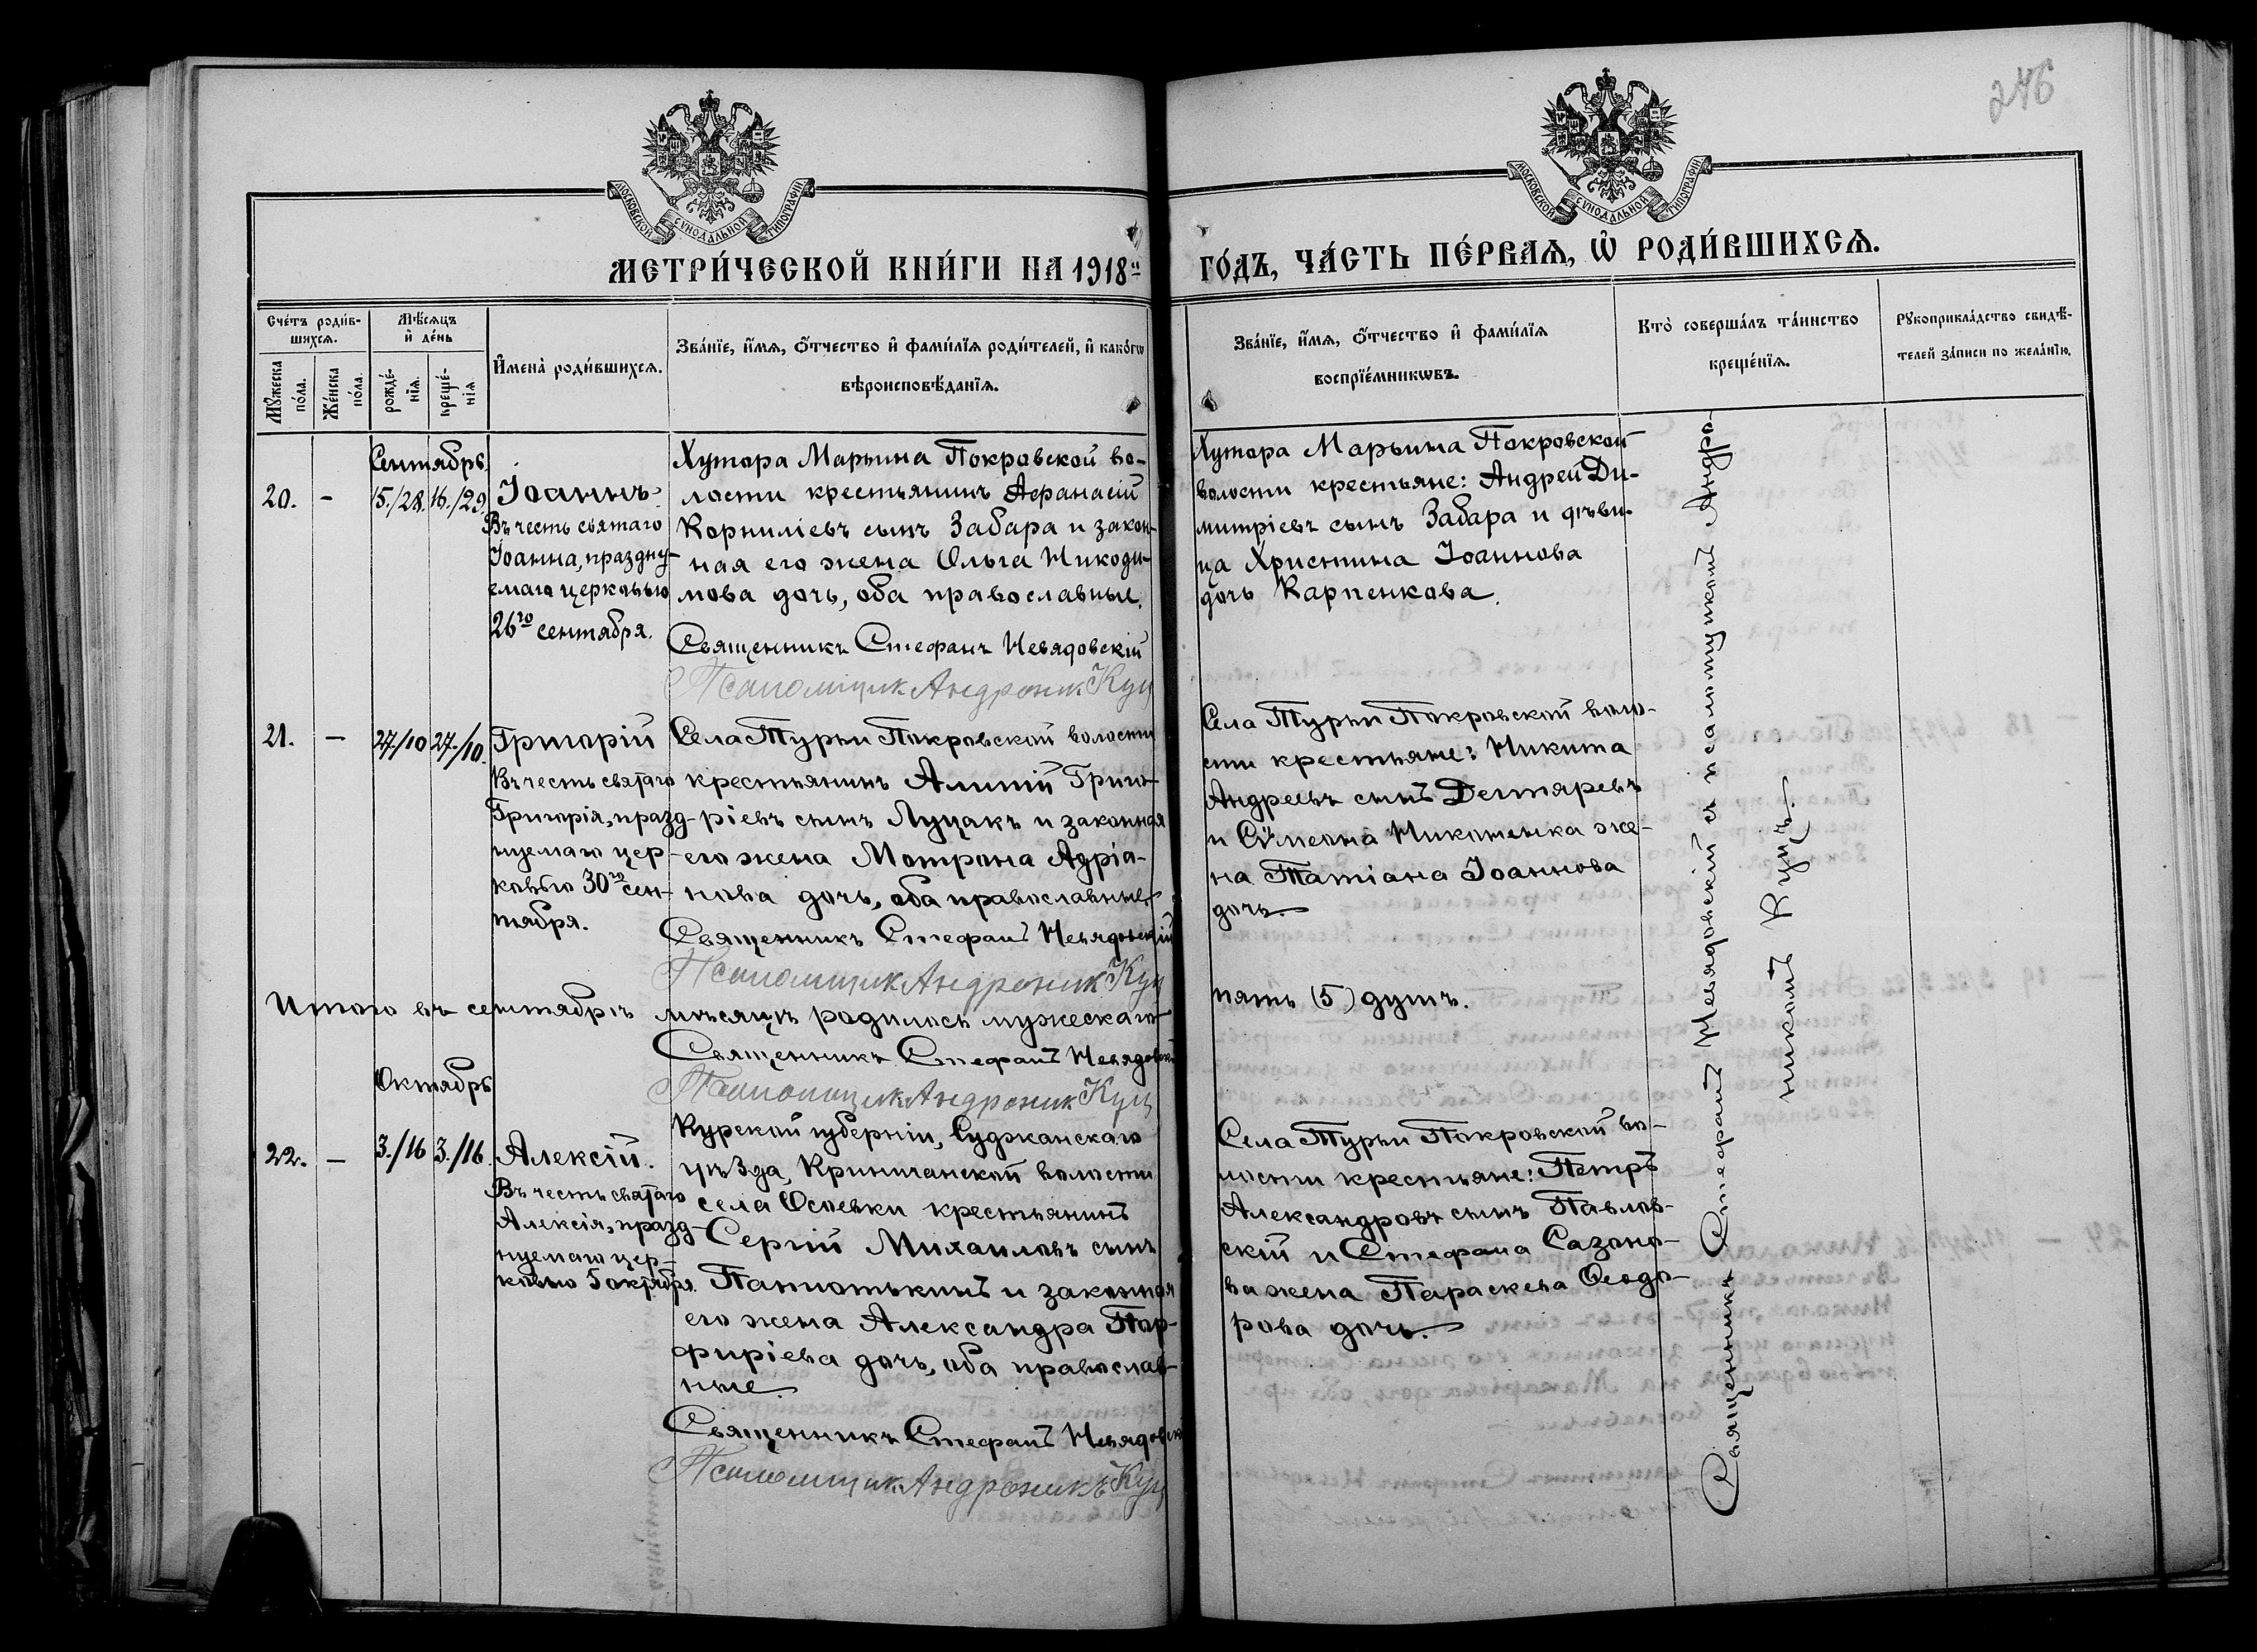 246
МОСКОВСКОЙ СѴНОДАЛЬНОЙ ТИПОГРАФІИ
МОСКОВСКОЙ СѴНОДАЛЬНОЙ ТИПОГРАФІИ
МЕТРИ́ЧЕСКОЙ КНИ́ГИ НА 1918й
ГО́ДЪ, ЧА́СТЬ ПЕ́РВАЯ, Ѡ҆ РОДИ́ВШИХСЯ.
Сче́тъ роди́в-
шихся.
Мꙋ́жеска по́ла.
Же́нска по́ла.
Мѣ́сяцъ
и҆ де́нь
рожде́-
нїя.
креще́-
нїя.
И҆мена̀ роди́вшихся.
Зва́нїе, и҆́мя, ѻ҆́тчество и҆ фами́лїя роди́телей, и҆ како́гѡ
вѣроисповѣ́данїя.
Зва́нїе, и҆́мя, ѻ҆́тчество и҆ фами́лїя
воспрїе́мникѡвъ.
Кто̀ соверша́лъ та́инство
креще́нїя.
Рꙋкоприкла́дство свидѣ́-
телей за́писи по жела́нїю.
Сентябрь
20.
-
15./28.
16./29.
Іоаннъ
Въ честь святаго
Іоанна, праздну-
емаго церковью
26го сентября.
Хутора Марьина Покровской во-
лости крестьянинъ Афанасій
Корниліевъ сынъ Забара и закон-
ная его жена Ольга Никоди-
мова дочь, оба православные.
Священникъ Стефанъ Невядовскій
Псаломщик Андроник Куц
Хутора Марьина Покровской
волости крестьяне: Андрей Ди-
митріевъ сынъ Забара и дѣви-
ца Христина Іоаннова
дочь Карпенкова.
21.
-
27/10
27./10.
Григорій
Въ честь святаго
Григорія, празд-
нуемаго цер-
ковью 30го сен-
тября.
Села Турьи Покровской волости
крестьянинъ Алипій Григо-
ріевъ сынъ Луцакъ и законная
его жена Мотрона Адріа-
нова дочь, оба православные.
Священникъ Стефанъ Невядовскій
Псаломщик Андроник Куц
Села Турьи Покровской воло-
сти крестьяне: Никита
Андреевъ сынъ Дегтяревъ
и Сѵмеона Никоненка же-
на Татіана Іоаннова
дочь.
Итого въ сентябрѣ мѣсяцѣ родилось мужескаго
пять (5) душъ.
Священникъ Стефанъ Невядовскій
Псаломщик Андроник Куц
Октябрь
22.
-
3./16
3./16.
Алексій.
Въ честь святаго
Алексія, празд-
нуемаго цер-
ковью 5 октября.
Курской губерніи, Суджанскаго
уѣзда, Криничанской волости
села Осоевки крестьянинъ
Сергій Михаиловъ сынъ
и законная
его жена Александра Пор-
фиріева дочь, оба православ-
ные.
Священникъ Стефанъ Невядовскій
Псаломщик Андроникъ Куц
Села Турьи Покровской во-
лости крестьяне: Петръ
Александровъ сынъ Павлов-
скій и Стефана Сазоно-
ва жена Параскева Ѳеодо-
рова дочь.
Священникъ Стефанъ Невядовскій и псаломщикъ Андро-
никъ Куцъ.